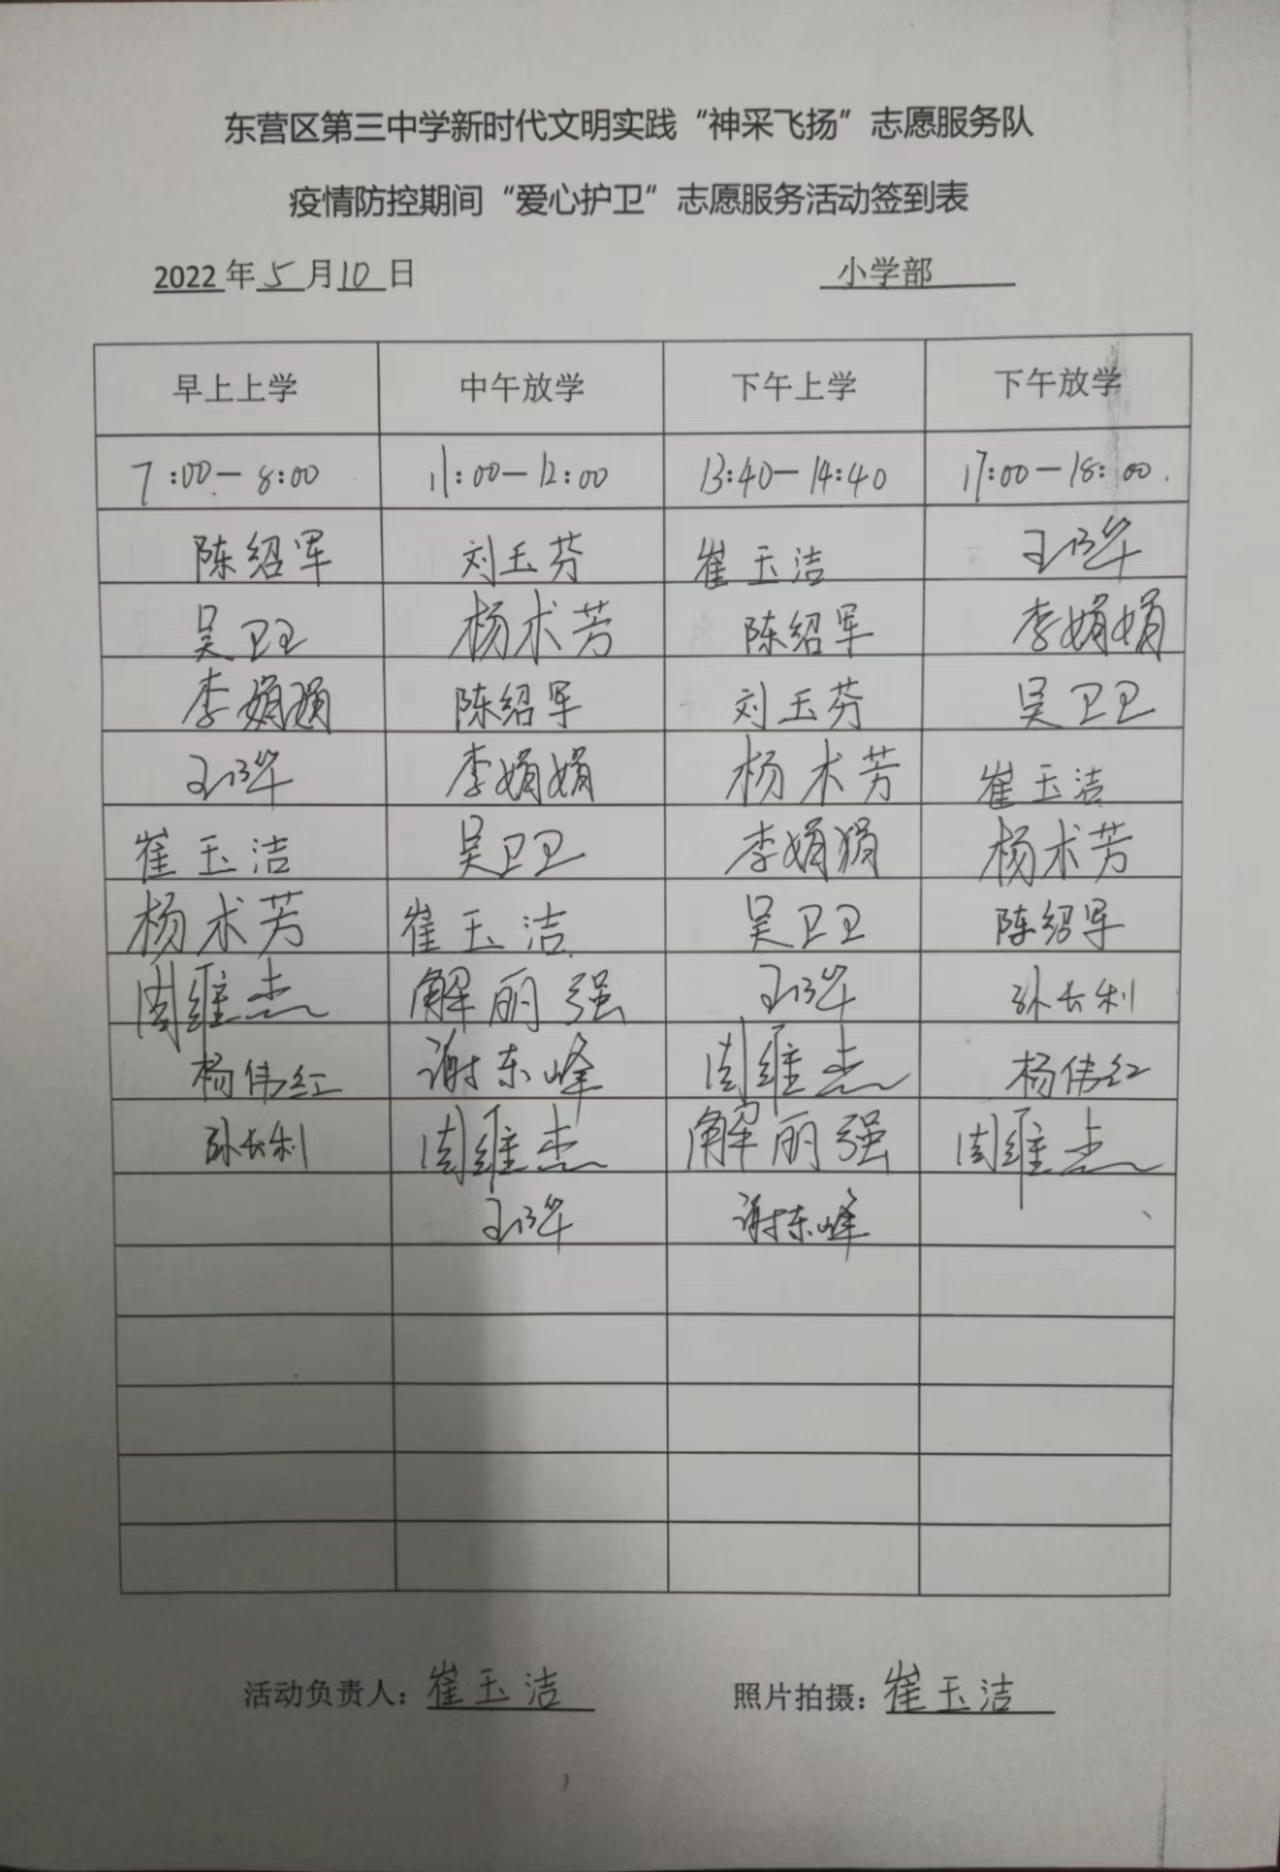 东营区第三中学新时代文明实践“神采飞扬”志愿服务队
疫情防控期间“爱心护卫”志愿服务活动签到表
2022年5月10日 小学部
早上上学 中午放学 下午上学 下午放学
7:00-8:00 11:00-12:00 13:40-14:40 17:00-18:00.
陈绍军 刘玉芬 崔玉洁
吴卫卫 杨术芳 陈绍军 李娟娟
李娟娟 陈绍军 刘玉芬 吴卫卫
李娟娟 杨术芳 崔玉洁
崔玉洁 吴卫卫 李娟娟 杨术芳
杨术芳 崔玉洁 吴卫卫 陈绍军
周维杰 解丽强 孙长利
杨伟红 谢东峰 周维杰 杨伟红
孙长利 周维杰 解丽强 周维杰
谢东峰
活动负责人：崔玉洁 照片拍摄：崔玉洁